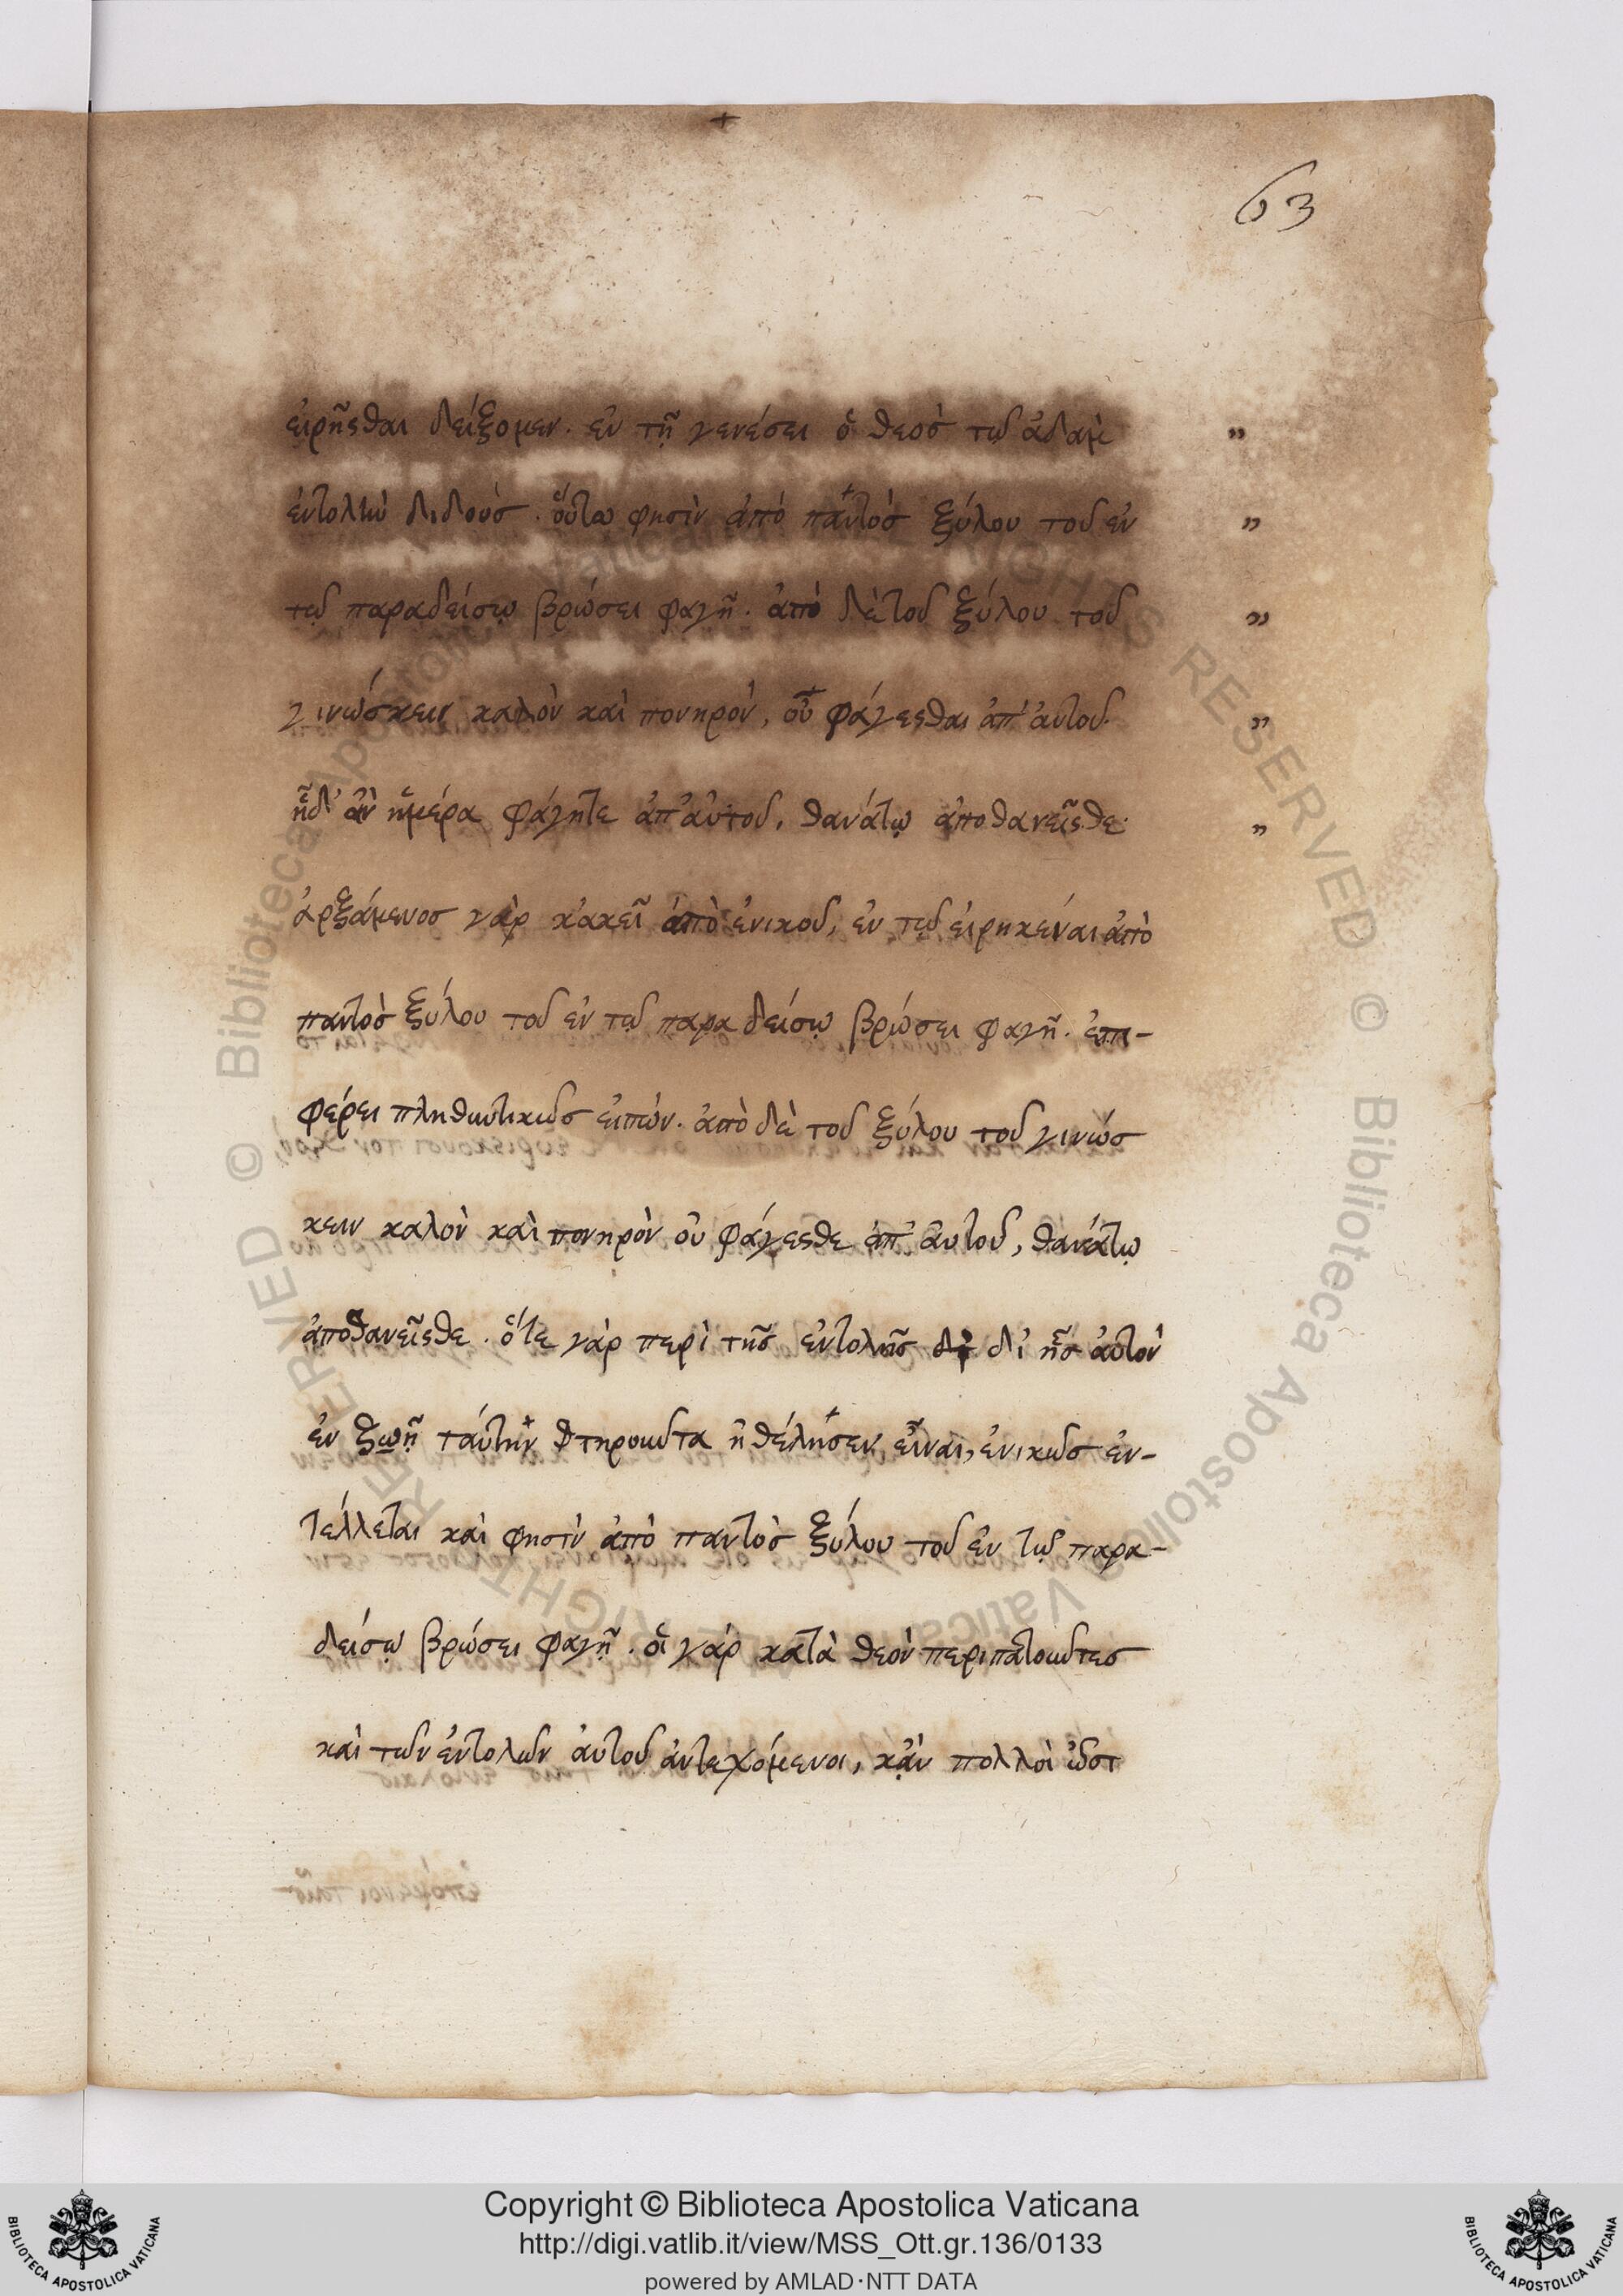 63
εἰρῆσθαι δείξομεν. ἐν τῇ γενέσει ὁ θεὸσ τῷ ἀδαμ „
ἐντολὴν διδοὺσ. οὕτω φησὶν ἀπὸ παντὸσ ξύλου τοῦ ἐν „
τῷ παραδείσῳ βρώσει φαγῆ. ἀπὸ δὲ τοῦ ξύλου τοῦ „
γινώσκειν καλὸν καὶ πονηρὸν, οὐ φάγεσθαι ἀπ' ἀυτοῦ. „
ἧδ' ἂν ἡμέρα φάγητε ἀπ' ἀυτοῦ, θανάτῳ ἀποθανεῖσθε. „
ἀρξάμενοσ γὰρ κἀκεῖ ἀπὸ ἑνικοῦ, ἐν τῷ εἰρηκέναι ἀπὸ
παντὸσ ξύλου τοῦ ἐν τῷ παραδείσῳ βρώσει φαγῆ. ἐπι-
φέρει πληθυντικῶσ εἰπών. ἀπὸ δὲ τοῦ ξύλου τοῦ γινώσ
κειν καλὸν καὶ πονηρὸν οὐ φάγεσθε ἀπ' ἀυτοῦ, θανάτῳ
ἀποθανεῖσθε. ὅτε γὰρ περὶ τῆσ ἐντολῆσ δι' ἧσ ἀυτὸν
ἐν ζωῇ ταύτην τηροῦντα ἠθέλησεν εἶναι, ἑνικῶσ ἐν-
τέλλεται καὶ φησὶν ἀπὸ παντὸσ ξύλου τοῦ ἐν τῷ παρα-
δείσῳ βρώσει φαγῆ. οἱ γὰρ κατὰ θεὸν περιπατοῦντεσ
καὶ τῶν ἐντολῶν ἀυτοῦ ἀντεχόμενοι, κἂν πολλοὶ ὦσι
Copyright © Biblioteca Apostolica Vaticana
http://digi.vatlib.it/view/MSS_Ott.gr.136/0133
powered by AMLAD·NTT DATA
BIBLIOTECA APOSTOLICA VATICANA
BIBLIOTECA APOSTOLICA VATICANA